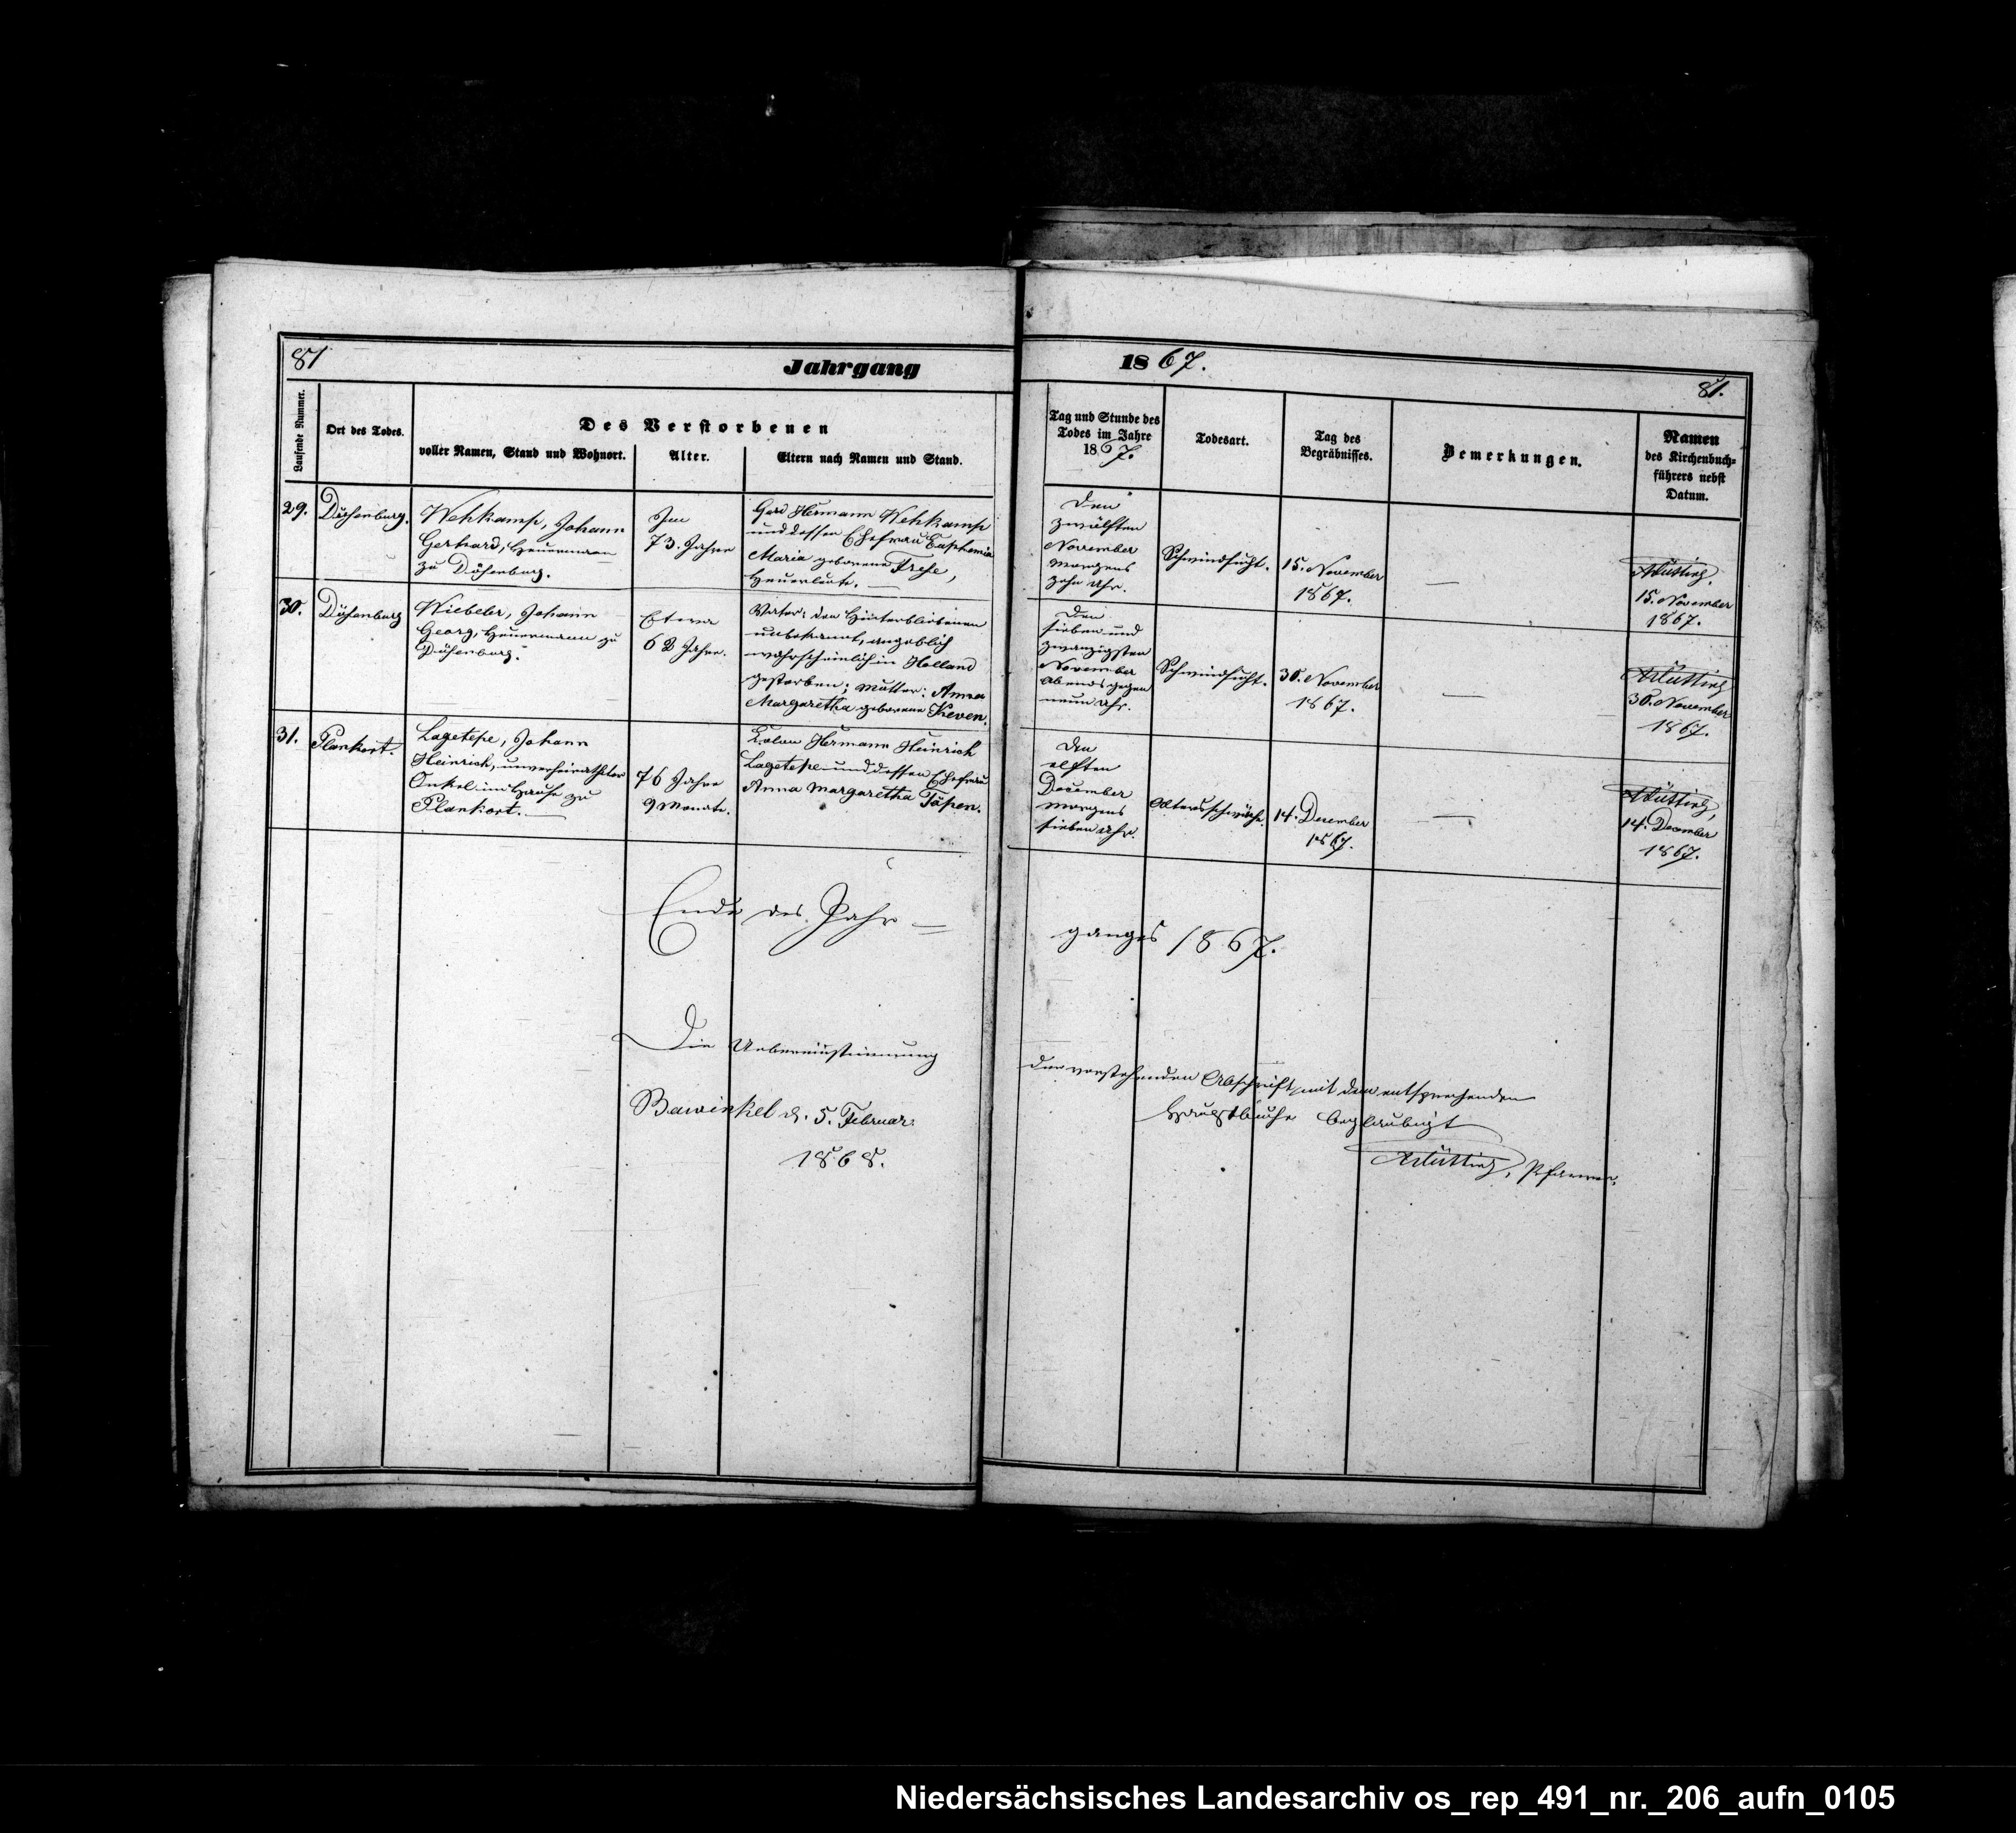 81
Jahrgang 1867.
81.
Laufende Nummer.
Ort des Todes.
Des Verstorbenen
voller Namen, Stand und Wohnort.
Alter.
Eltern nach Namen und Stand.
Tag und Stunde des
Todes im Jahre
1867.
Todesart.
Tag des
Begräbnisses.
Bemerkungen.
Namen
des Kirchenbuch=
führers nebst
Datum.
29.
Duisenburg.
Wehkamp, Johann
Gerhard, Heuermann
zu Duisenburg.
Im
73. Jahre
Gerd Hermann Wehkamp
und dessen Ehefrau Euphemia
Maria geborene Frese,
Heuerleute.
Den
zwölften
November
Morgens
zehn Uhr.
Schwindsucht.
15. November
1867.
—
15. November
1867.
30.
Düsenburg
Wiebeler, Johann
Georg, Heuermann zu
Düsenburg.
Etwa
62 Jahre.
Vater: den Hinterbliebenen
unbekannt, angeblich
wahrscheinlich in Holland
gestorben; Mutter: Anna
Margaretha geborene Keven.
Den
sieben und
zwanzigsten
November
Abends gegen
neun Uhr.
Schwindsucht.
30. November
1867.
—
30. November
1867.
31.
Plankort.
Lagetepe, Johann
Heinrich, unverheiratheter
Onkel im Hause zu
Plankort.
76 Jahre
9 Monate.
Colon Hermann Heinrich
Lagetepe und dessen Ehefrau
Anna Margaretha Täpen.
Den
elften
December
Morgens
sieben Uhr.
Altersschwäche.
14. December
1867.
—
14. December
1867.
Ende des Jahr=ganges 1867.
Die Uebereinstimmung der vorstehenden Abschrift mit dem entsprechenden
Hauptbuche beglaubigt
Bawinkel d. 5. Februar
1868.
Pfarrer.
Niedersächsisches Landesarchiv os_rep_491_nr._206_aufn_0105